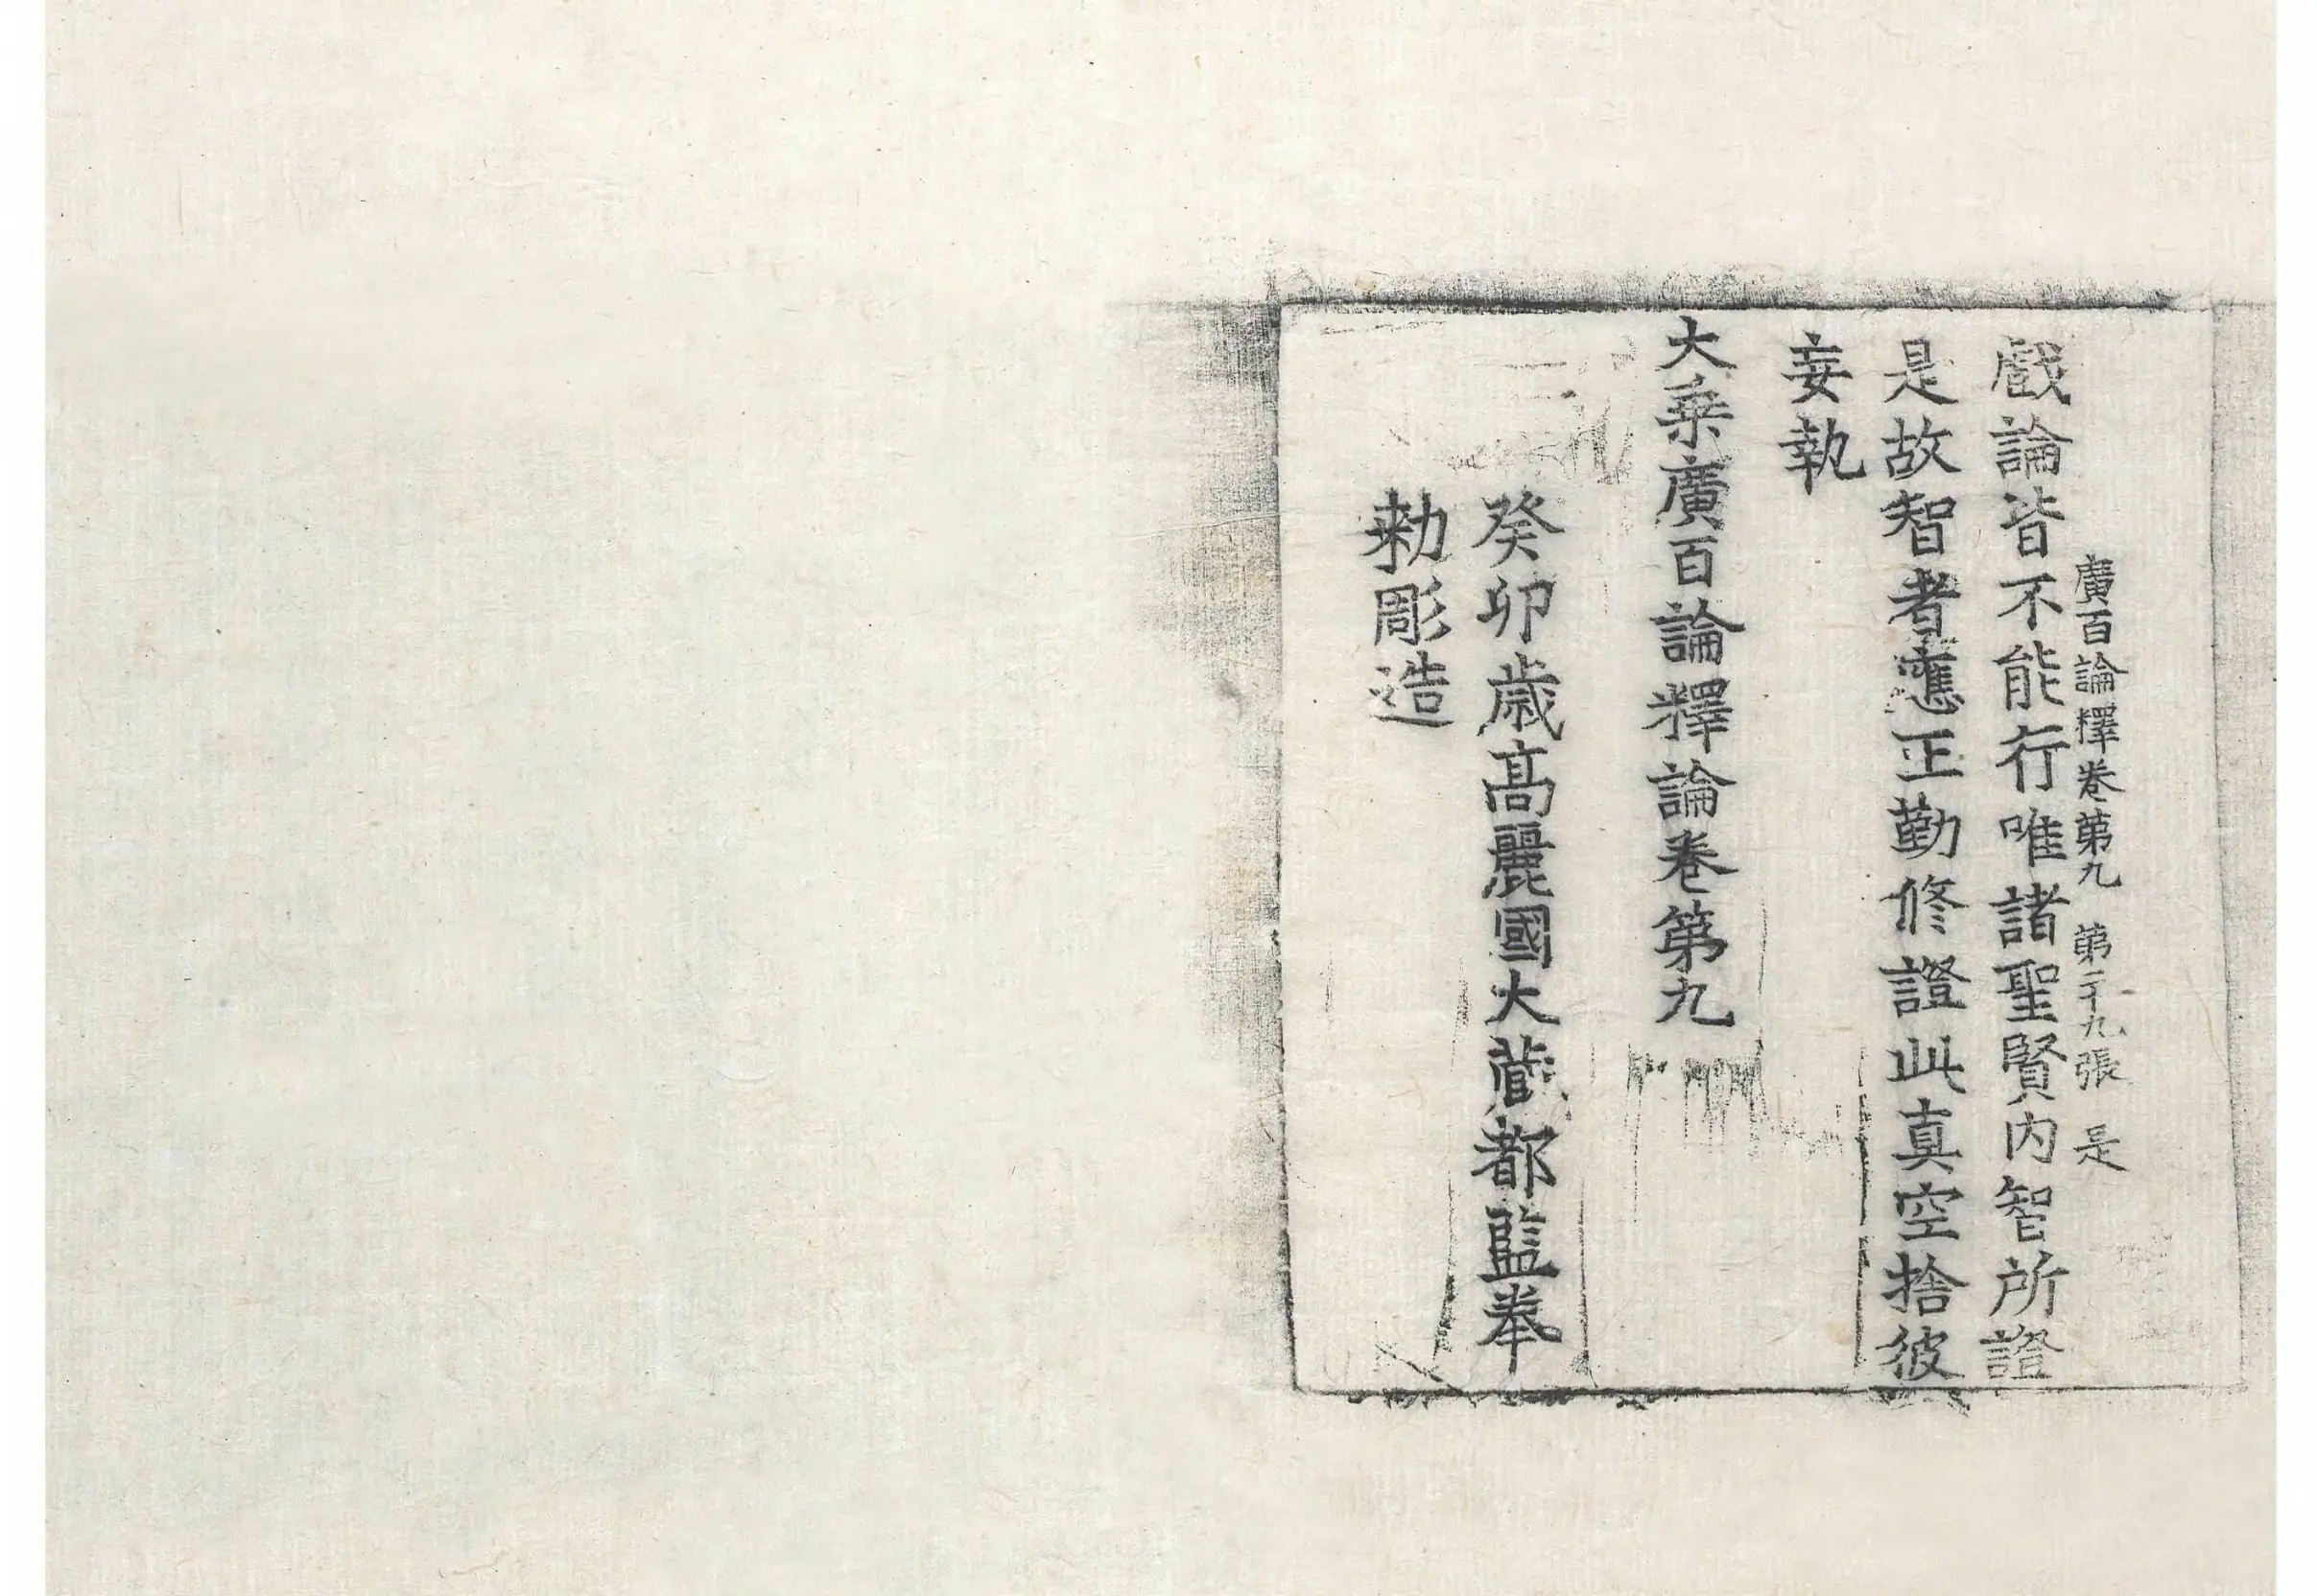 廣百論釋卷第九 第二十九張 是
戲論皆不能行唯諸聖賢内智所證
是故智者應正勤修證此真空捨彼
妄執
大乗廣百論釋論卷第九
癸卯歳髙麗國大藏都監奉
勑彫造